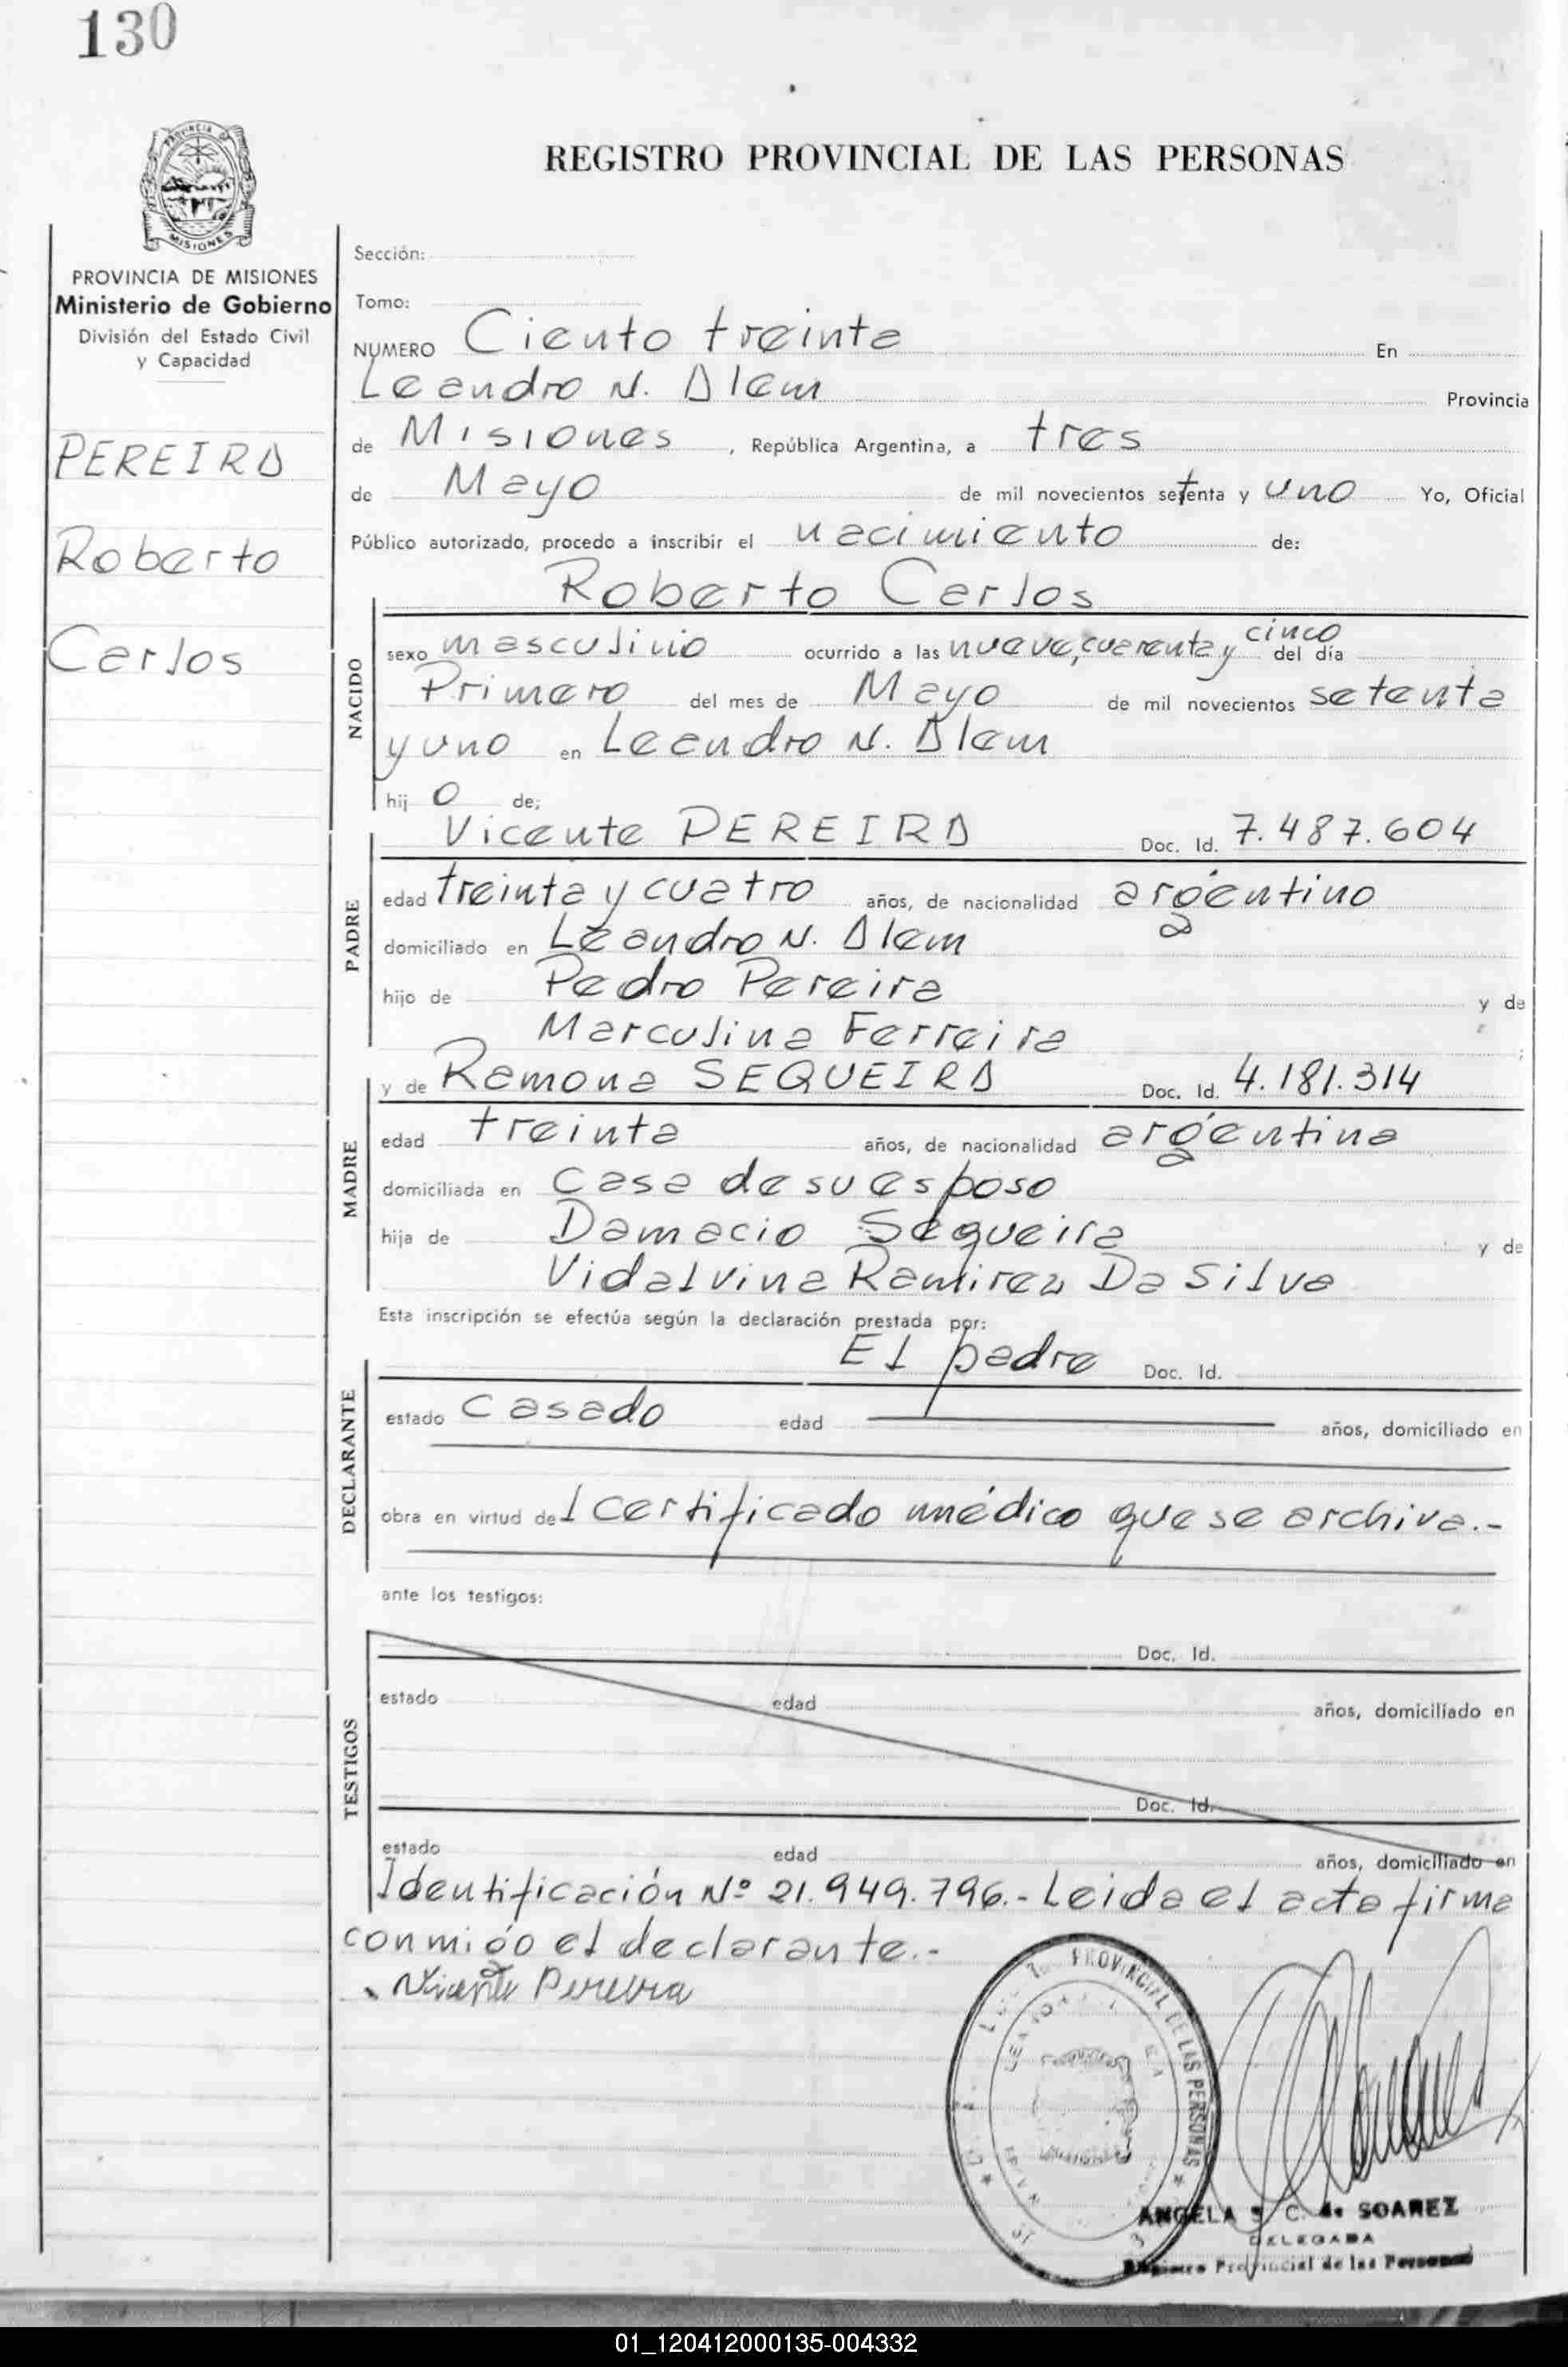 130
PROVINCIA DE MISIONES
Ministerio de Gobierno
División del Estado Civil
y Capacidad
PEREIRA
Roberto
Carlos
REGISTRO PROVINCIAL DE LAS PERSONAS
Sección:
Tomo:
NUMERO Ciento treinta En
Leandro N. Alem Provincia
de Misiones, República Argentina, a tres
de Mayo de mil novecientos setenta y uno Yo, Oficial
Público autorizado, procedo a inscribir el nacimiento de:
Roberto Carlos
NACIDO
sexo masculino ocurrido a las nueve, cuarenta y cinco del día
Primero del mes de Mayo de mil novecientos setenta
y uno en Leandro N. Alem
hijo de;
Vicente PEREIRA Doc. Id. 7.487.604
PADRE
edad treinta y cuatro años, de nacionalidad argentino
domiciliado en Leandro N. Alem
hijo de Pedro Pereira y de
Marculina Ferreira
y de Ramona SEQUEIRA Doc. Id. 4.181.314
MADRE
edad treinta años, de nacionalidad argentina
domiciliada en casa de su esposo
hija de Damacio Sequeira y de
Vidalvina Ramirez Da Silva
Esta inscripción se efectúa según la declaración prestada por:
El padre Doc. Id.
DECLARANTE
estado casado edad años, domiciliado en
obra en virtud del certificado médico que se archiva.-
ante los testigos:
Doc. Id.
TESTIGOS
estado edad años, domiciliado en
Doc. Id.
estado edad años, domiciliado en
Identificación Nº 21.949.796.- Leida el acta firma
conmigo el declarante.-
Vicente Pereira
PROVINCIAL DE LAS PERSONAS
ANGELA C. de SOAREZ
DELEGADA
Registro Provincial de las Personas
01_120412000135-004332